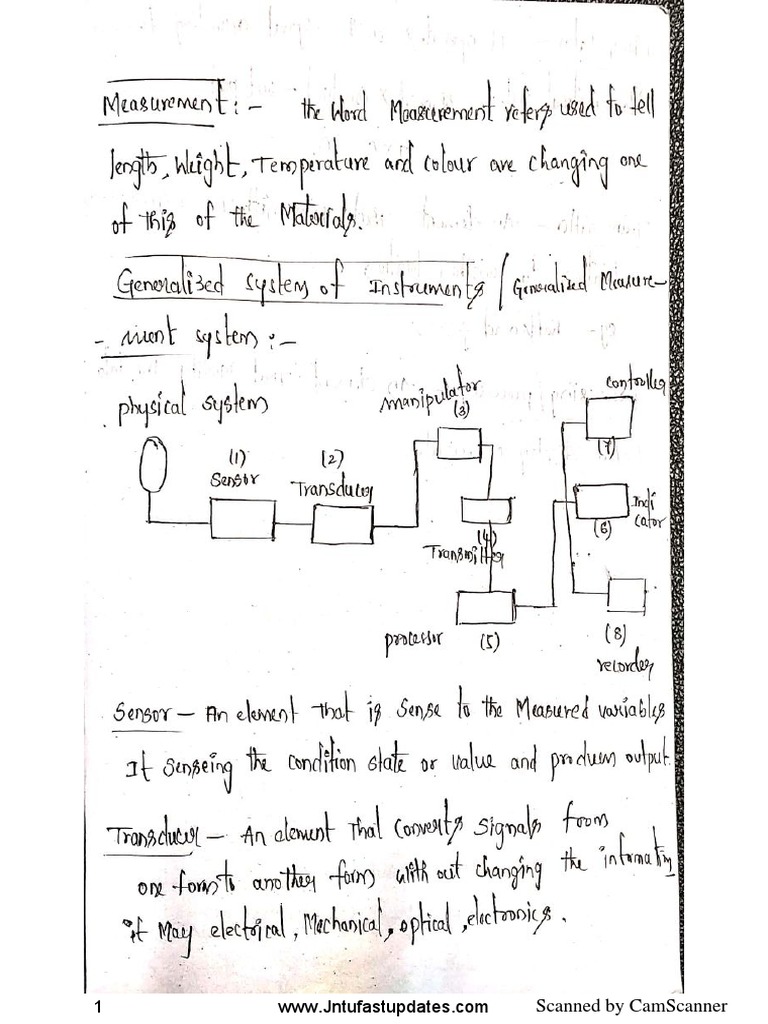 Measurement :- the Word Measurement refers used to tell
length, Weight, Temperature and colour are changing one
of this of the Materials.
Generalized system of Instruments / Generalized Measure-
- ment system :-
physical system
manipulator
(3)
controller
(7)
(1)
Sensor
(2)
Transducer
(4)
Transmitter
Indi
cator
(6)
processor
(5)
(8)
recorder
Sensor - An element that is sense to the Measured variables
It senseing the condition state or value and produces output.
Transducer - An element That converts signals from
one form to another form with out changing the information
it May electrical, Mechanical, optical, electronics.
1
www.Jntufastupdates.com
Scanned by CamScanner